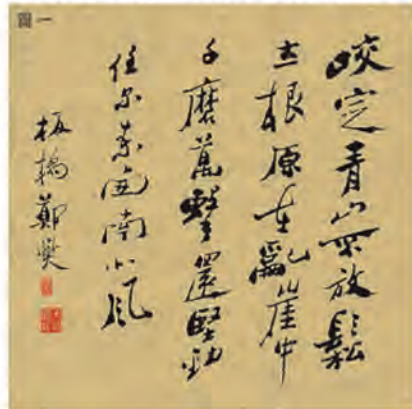 圖一
咬定青山不放鬆
立根原在亂崖中
千磨萬擊還堅勁
任尔東西南北風
板橋鄭燮